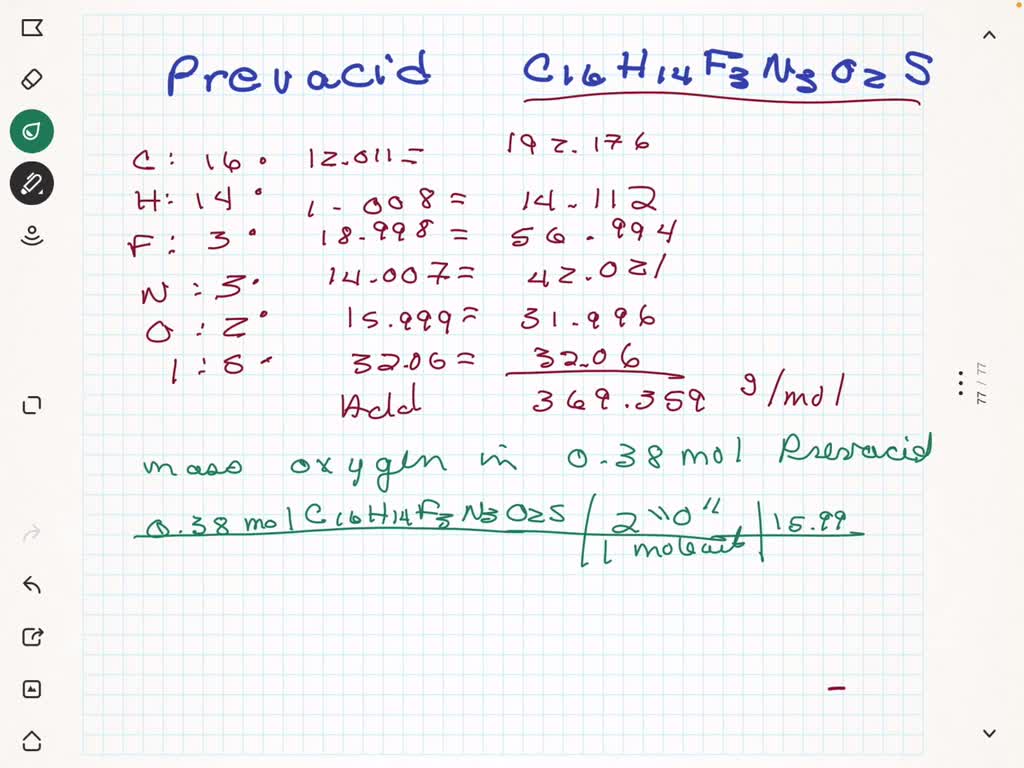 Prevacid C16H14F3N3O2S
C: 16 · 12.011 = 192.176
H: 14 · 1.008 = 14.112
F: 3 · 18.998 = 56.994
N: 3 · 14.007 = 42.021
O: 2 · 15.999 = 31.996
32.06 = 32.06
Add 369.359 g/mol
mass oxygen in 0.38 mol Prevacid
0.38 mol C16H14F3N3O2S 2 "O" 15.99
1 molecule
77 / 77